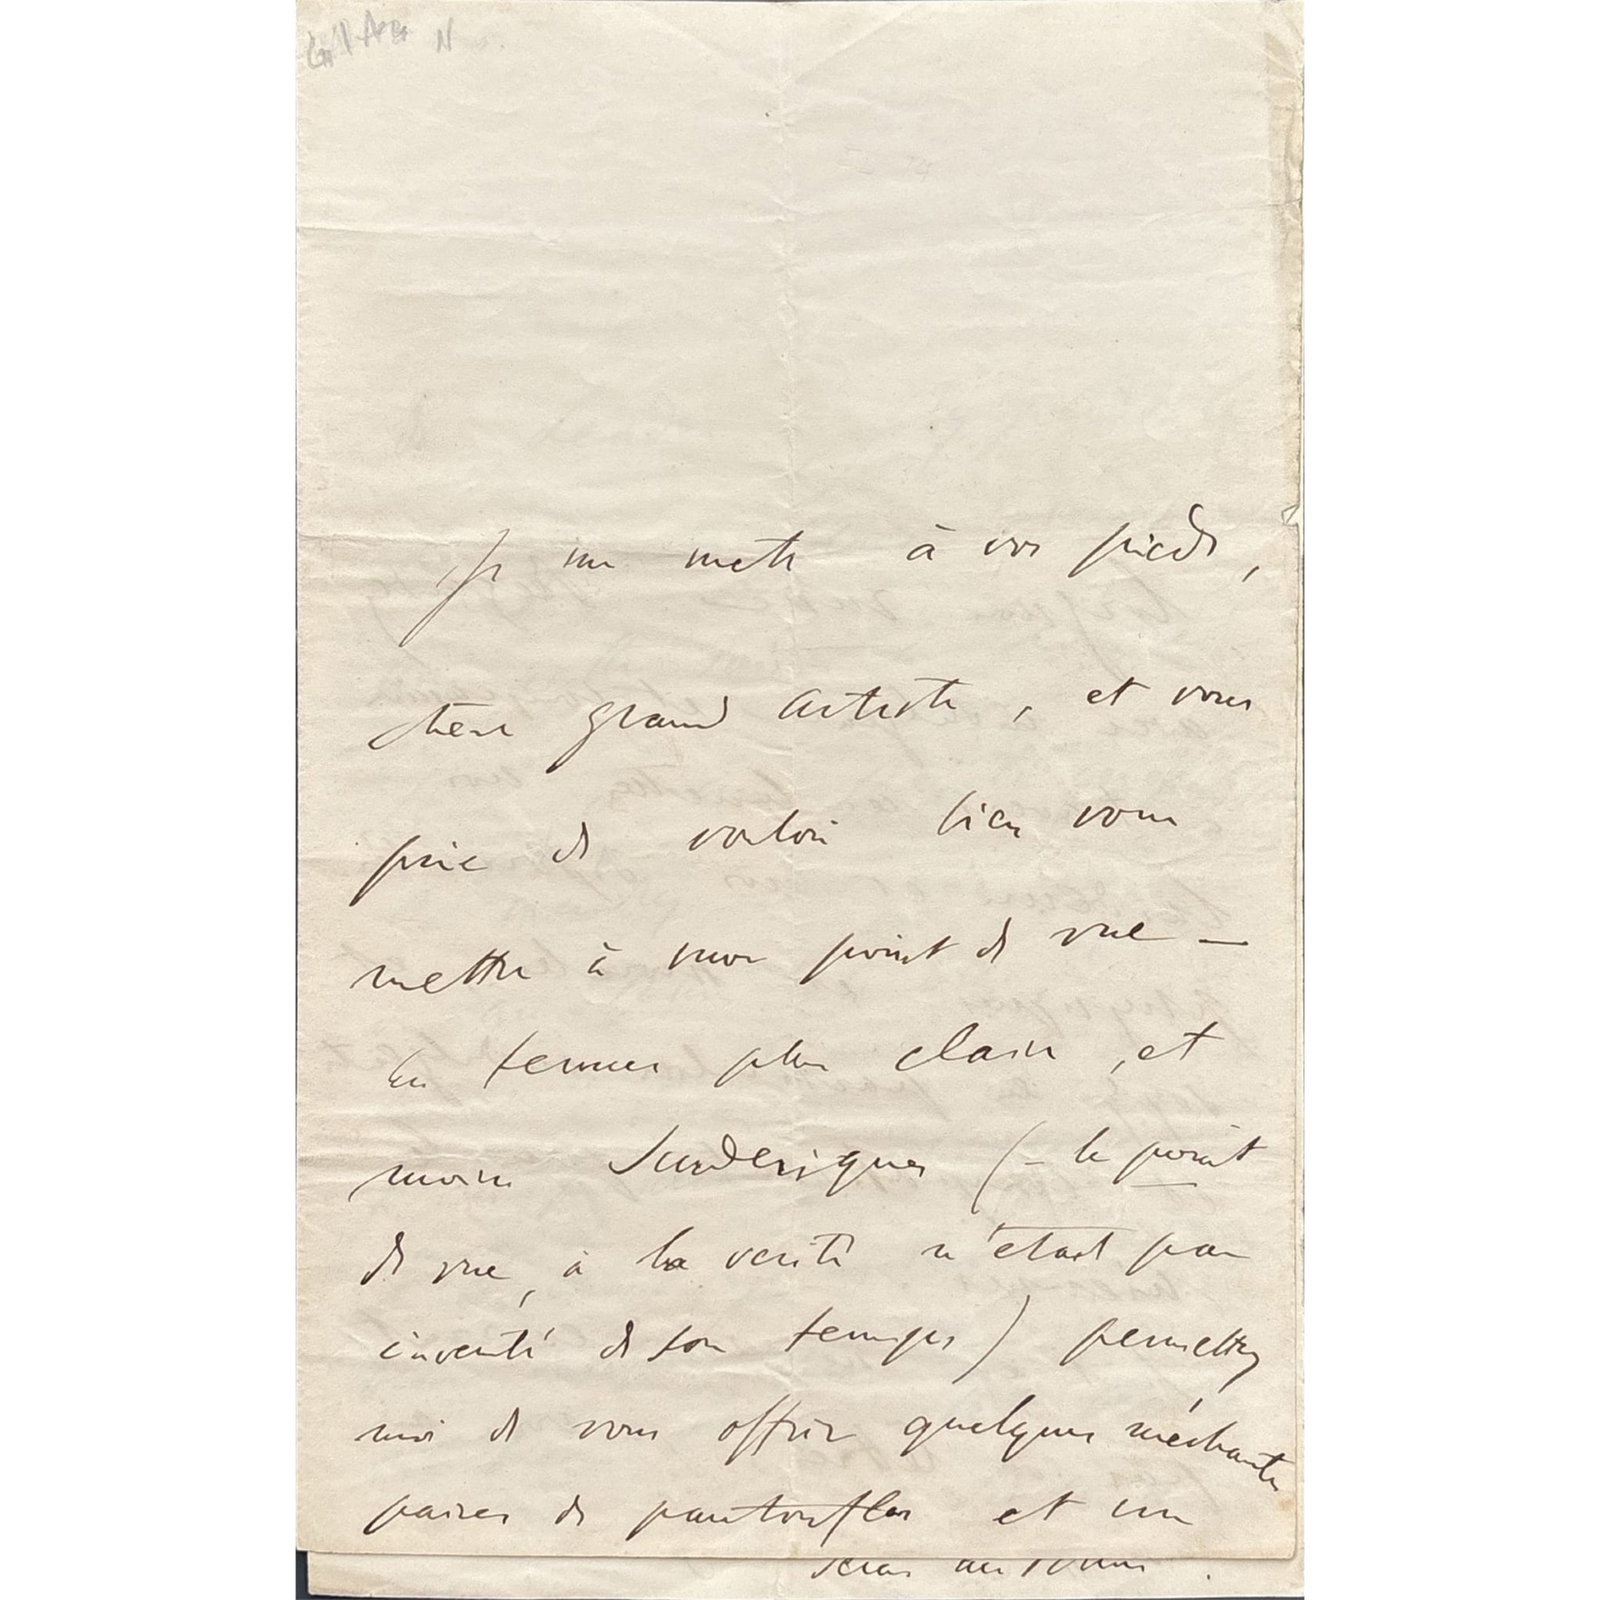 Je me mets à vos pieds,
cher grand Artiste, et vous
prie de vouloir bien vous
mettre à mon point de vue —
En termes plus clairs, et
moins (— le point
de vue, à la verité n'était pas
inventé de son temps) permettez
moi de vous offrir quelques méchantes
paires de pantoufles et un